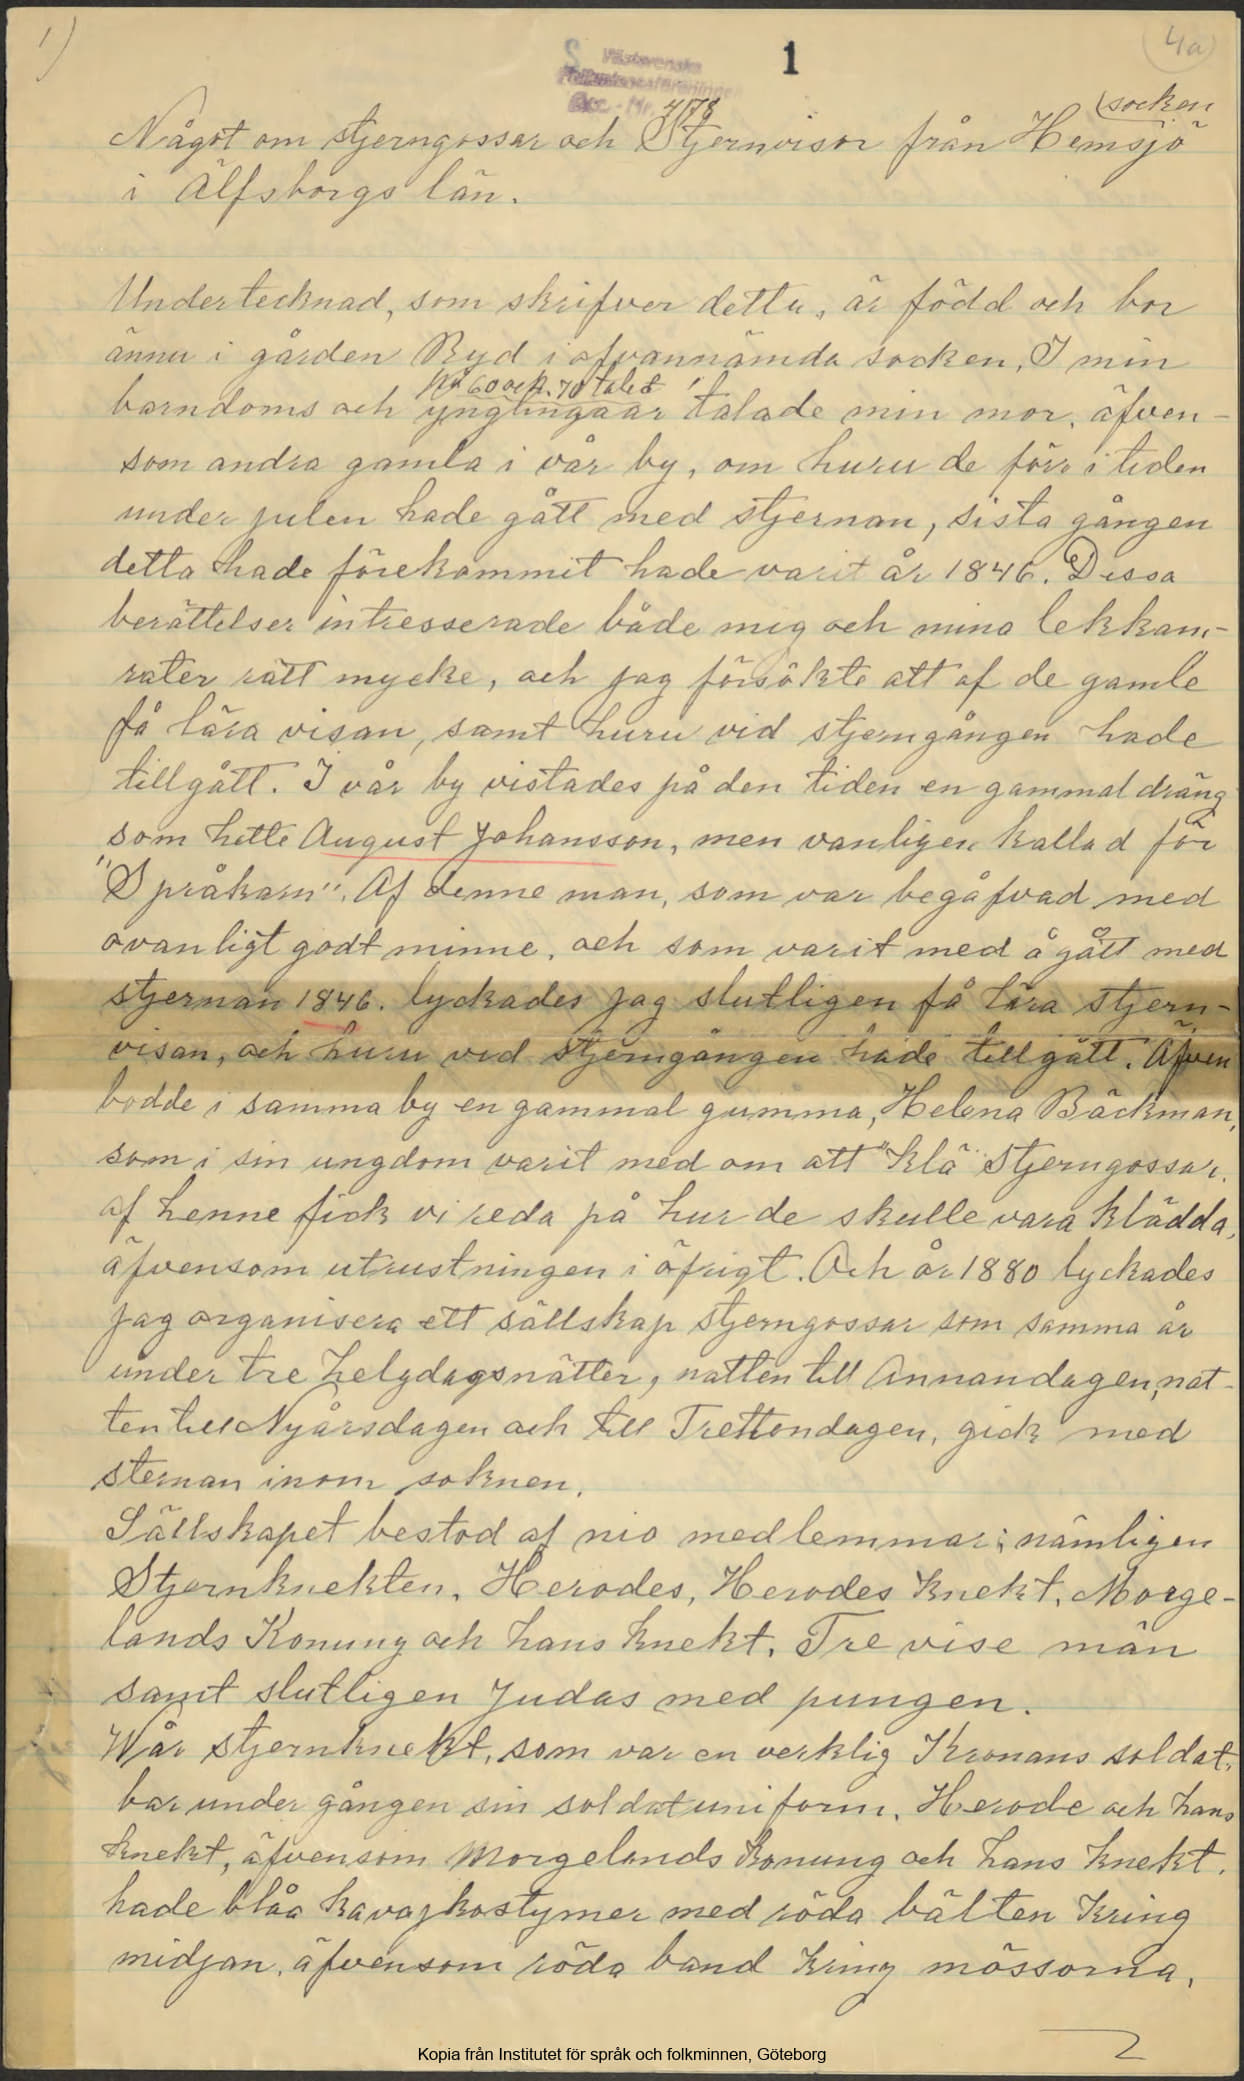 1)
1
4a
Västsvenska
Folkminnesföreningen
Acc.-Nr. 4178
socken
Något om stjerngossar och Stjernvisor från Hemsjö
i Älfsborgs län.
Undertecknad, som skrifver detta, är född och bor
ännu i gården Ryd i ofvannämda socken, I min
på 60 och 70 talet
barndoms och ynglingaår talade min mor, äfven-
som andra gamla i vår by, om huru de förr i tiden
under julen hade gått med stjernan, sista gången
detta hade förekommit hade varit år 1846. Dessa
berättelser intresserade både mig och mina lekkam-
rater rätt mycke, och jag försökte att af de gamle
få lära visan, samt huru vid stjerngången hade
tillgått. I vår by vistades på den tiden en gammal dräng
som hette August Johansson, men vanligen kallad för
"Språkarn". Af denne man, som var begåfvad med
ovanligt godt minne, och som varit med å gått med
stjernan 1846. lyckades jag slutligen få lära stjern-
visan, och huru ved stjerngången hade tillgått. Äfven
bodde i samma by en gammal gumma, Helena Bäckman,
som i sin ungdom varit med om att "klä" stjerngossar.
af henne fick vi reda på hur de skulle vara klädda,
äfvensom utrustningen i öfrigt. Och år 1880 lyckades
jag organisera ett sällskap stjerngossar som samma år
under tre helgdagsnätter, natten till Annandagen, nat-
ten till Nyårsdagen och till Trettondagen, gick med
sternan inom soknen.
Sällskapet bestod af nio medlemmar; nämligen
Stjernknekten, Herodes, Herodes knekt, Morge-
lands Konung och hans knekt. Tre vise män
samt slutligen Judas med pungen.
Wår stjernknekt, som var en verklig Kronans soldat,
bar under gången sin soldatuniform. Herode och hans
knekt, äfvensom Morgelands konung och hans knekt.
hade blåa kavajkostymer med röda bälten kring
midjan, äfvensom röda band kring mössorna.
2
Kopia från Institutet för språk och folkminnen, Göteborg